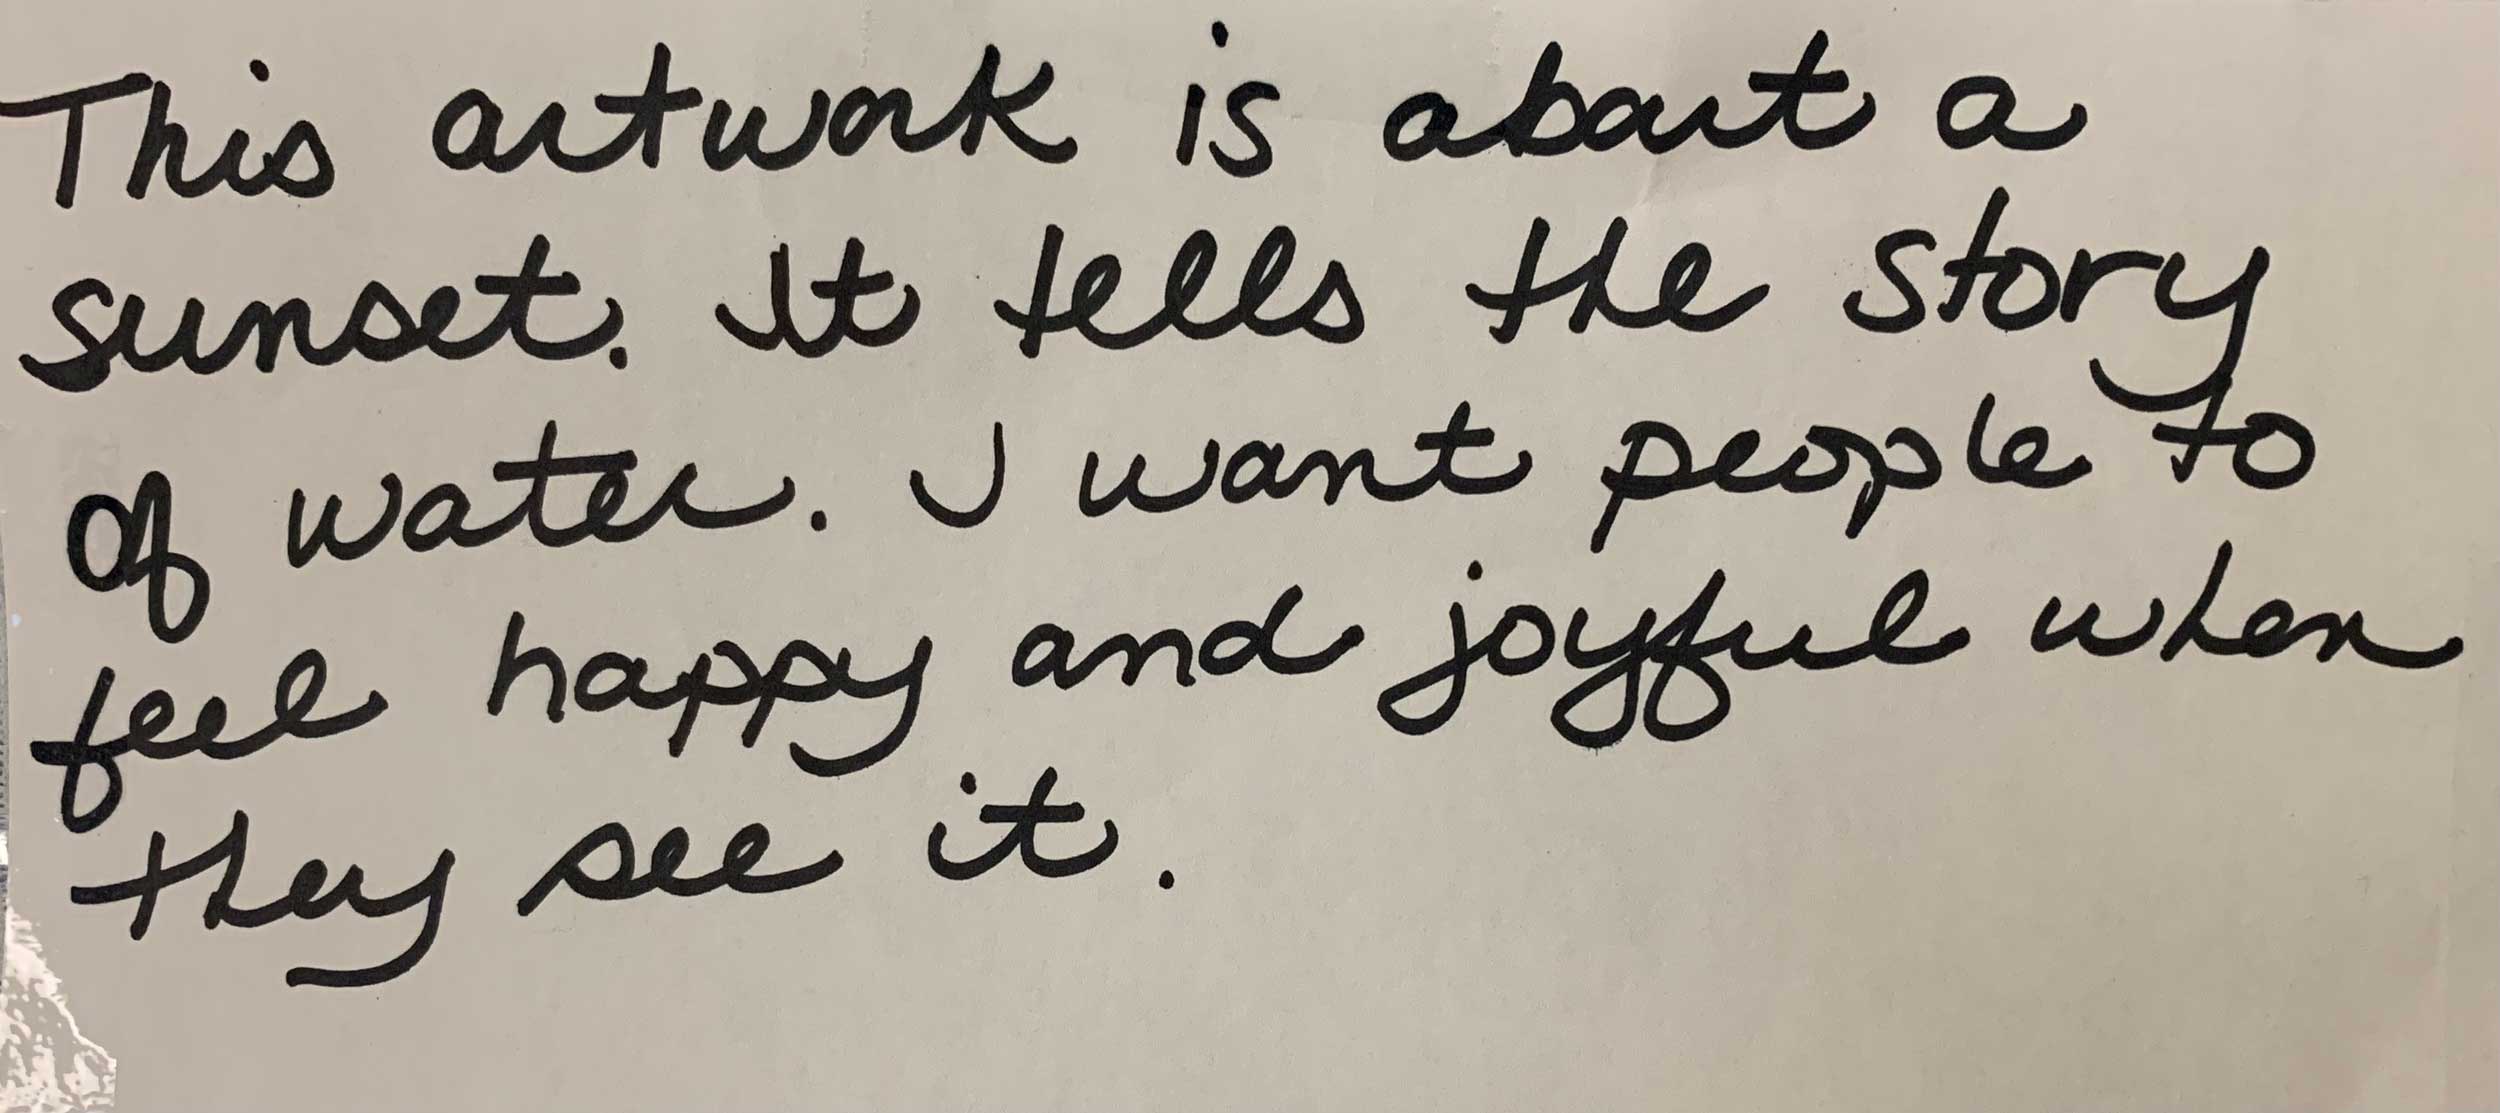 This artwork is about a
sunset. It tells the story
of water. I want people to
feel happy and joyful when
they see it.